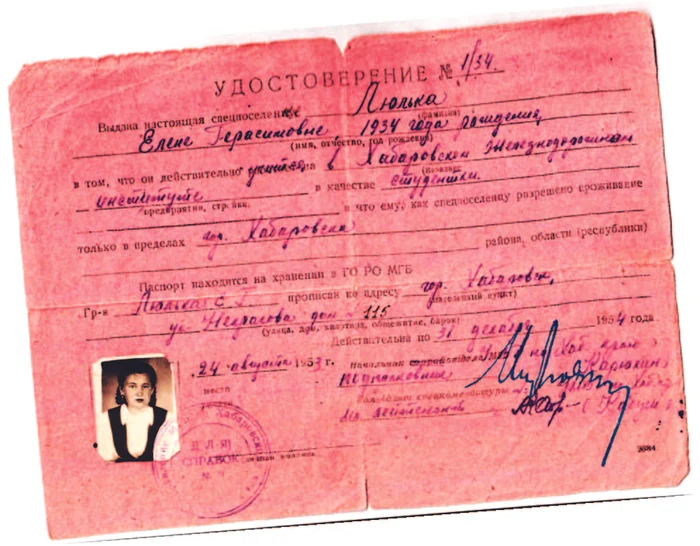 УДОСТОВЕРЕНИЕ № 1/34
Выдана настоящая спецпоселенке Люлька
(фамилия)
Елене Герасимовне 1934 года рождения,
(имя, отчество, год рождения)
в том, что он действительно учится на в Хабаровском Железнодорожном
институте в качестве студентки.
предприятия, стройки,
и что ему, как спецпоселенцу разрешено проживание
только в пределах гор. Хабаровска
района, области (республики)
Паспорт находится на хранении в ГО РО МГБ
Гр-н Люлька прописан по адресу гор. Хабаровск,
(населенный пункт)
ул Некрасова дом 115
(улица, дом, квартира, общежитие, барак)
Действительна по 31 декабря 1954 года
24 августа 1953 г.
место
подполковник
Комендант спецкомендатуры
Мл лейтенант
ДЛЯ
СПРАВОК
№